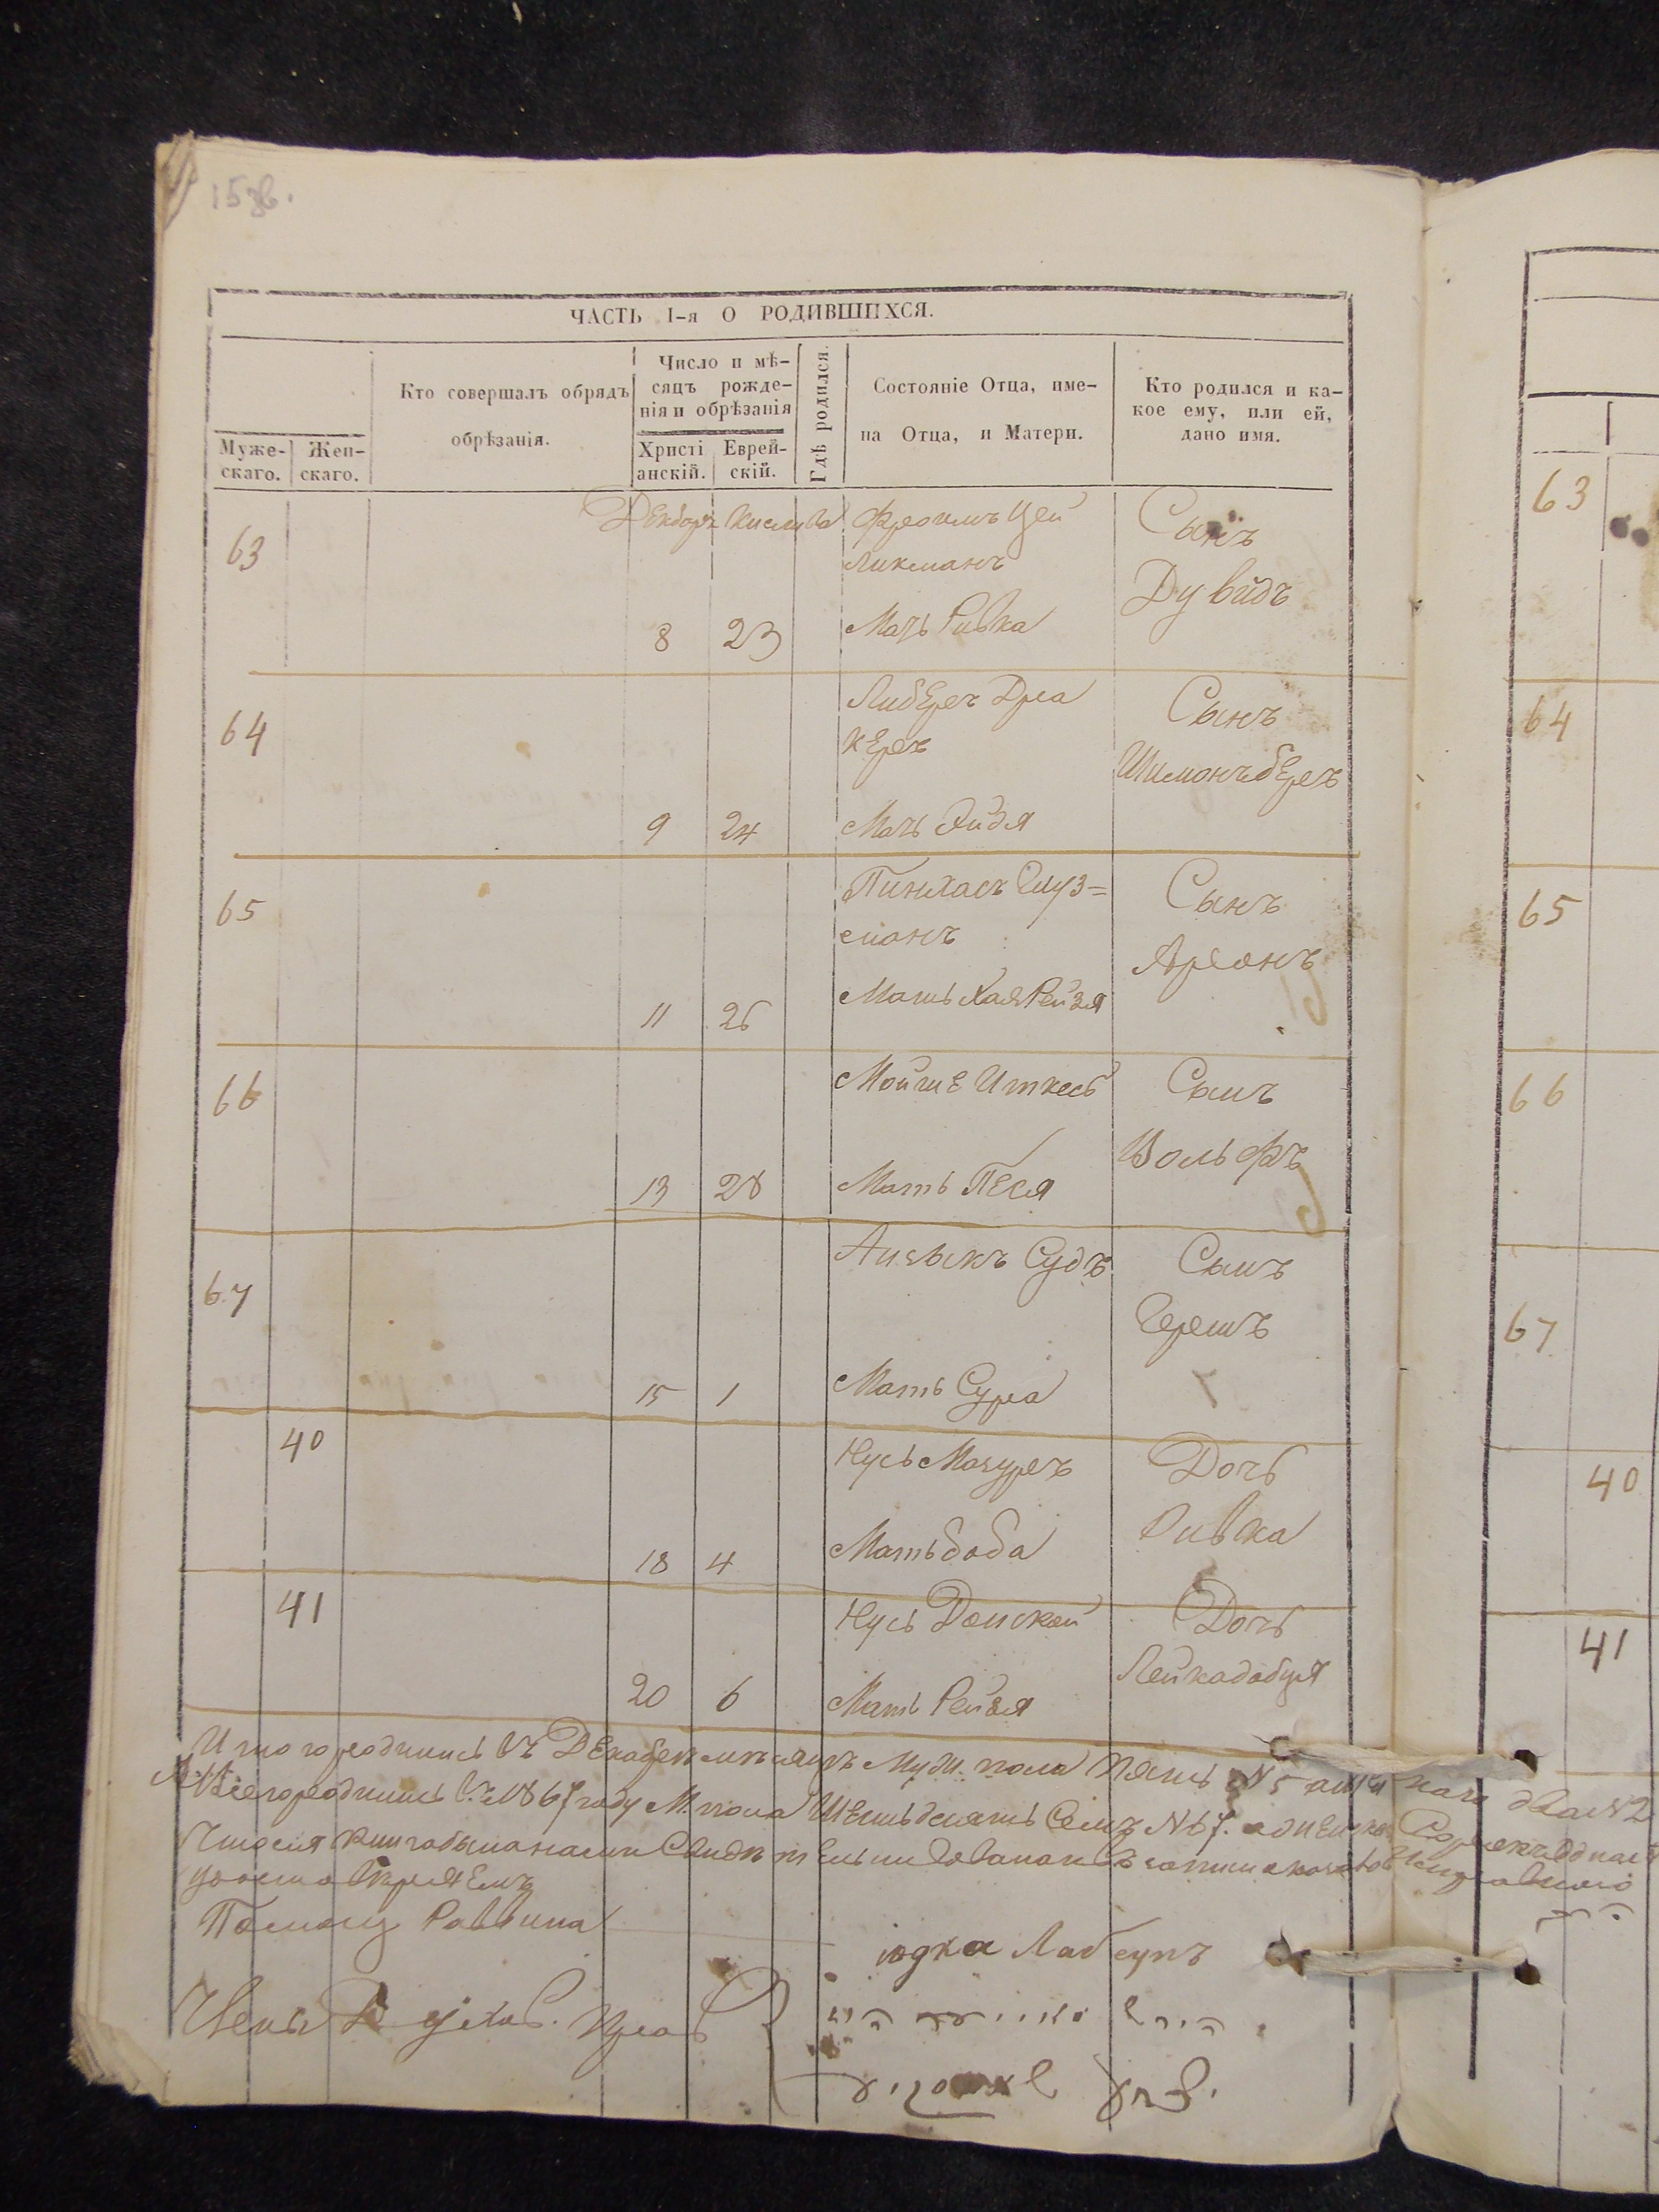 15 зв.
ЧАСТЬ I-я О РОДИВШИХСЯ.
Муже-скаго.
Жен-скаго.
Кто совершалъ обрядъ
обрѣзанія.
Число и мѣ-
сяцъ рожде-
нія и обрѣзанія
Христі анскій.
Еврей-скій.
Гдѣ родился.
Состояніе Отца, име-
на Отца, и Матери.
Кто родился и ка-
кое ему, или ей,
дано имя.
63
Декборъ Кислива
8 23
Фроимъ Цей
ликманъ
Мать Ривка
Сынъ
Дувидъ
64
9 24
Либеръ Дра
керъ
Мать Эйдя
Сынъ
Шимонъ беръ
65
11 26
Пинхасъ Глуз=
манъ
Мать Хая Рейзя
Сынъ
Аронъ
66
13 28
Мойше Иткесъ
Мать Песя
Сынъ
Вольфъ
67
15 1
Айзыкъ Судъ
Мать Сура
Сынъ
Гершъ
40
18 4
Нусь Мазуръ
Мать боба
Дочь
Ривка
41
20 6
Нусь Донской
Мать Рейзя
Дочь
Лейкадобця
Итого родились въ Декабрѣ мѣсяцѣ Муж. пола пять №5 а жен ка го два №2
Всего родились въ 1867 году М. пола Шестьдесятъ Семъ №67. а женска Сорокъ одна 41
Что сія книга была нами Свидѣтельствована
Удостовѣряемъ
Помощ Раввина
Іодка Лаб
63
64
65
66
67
40
41